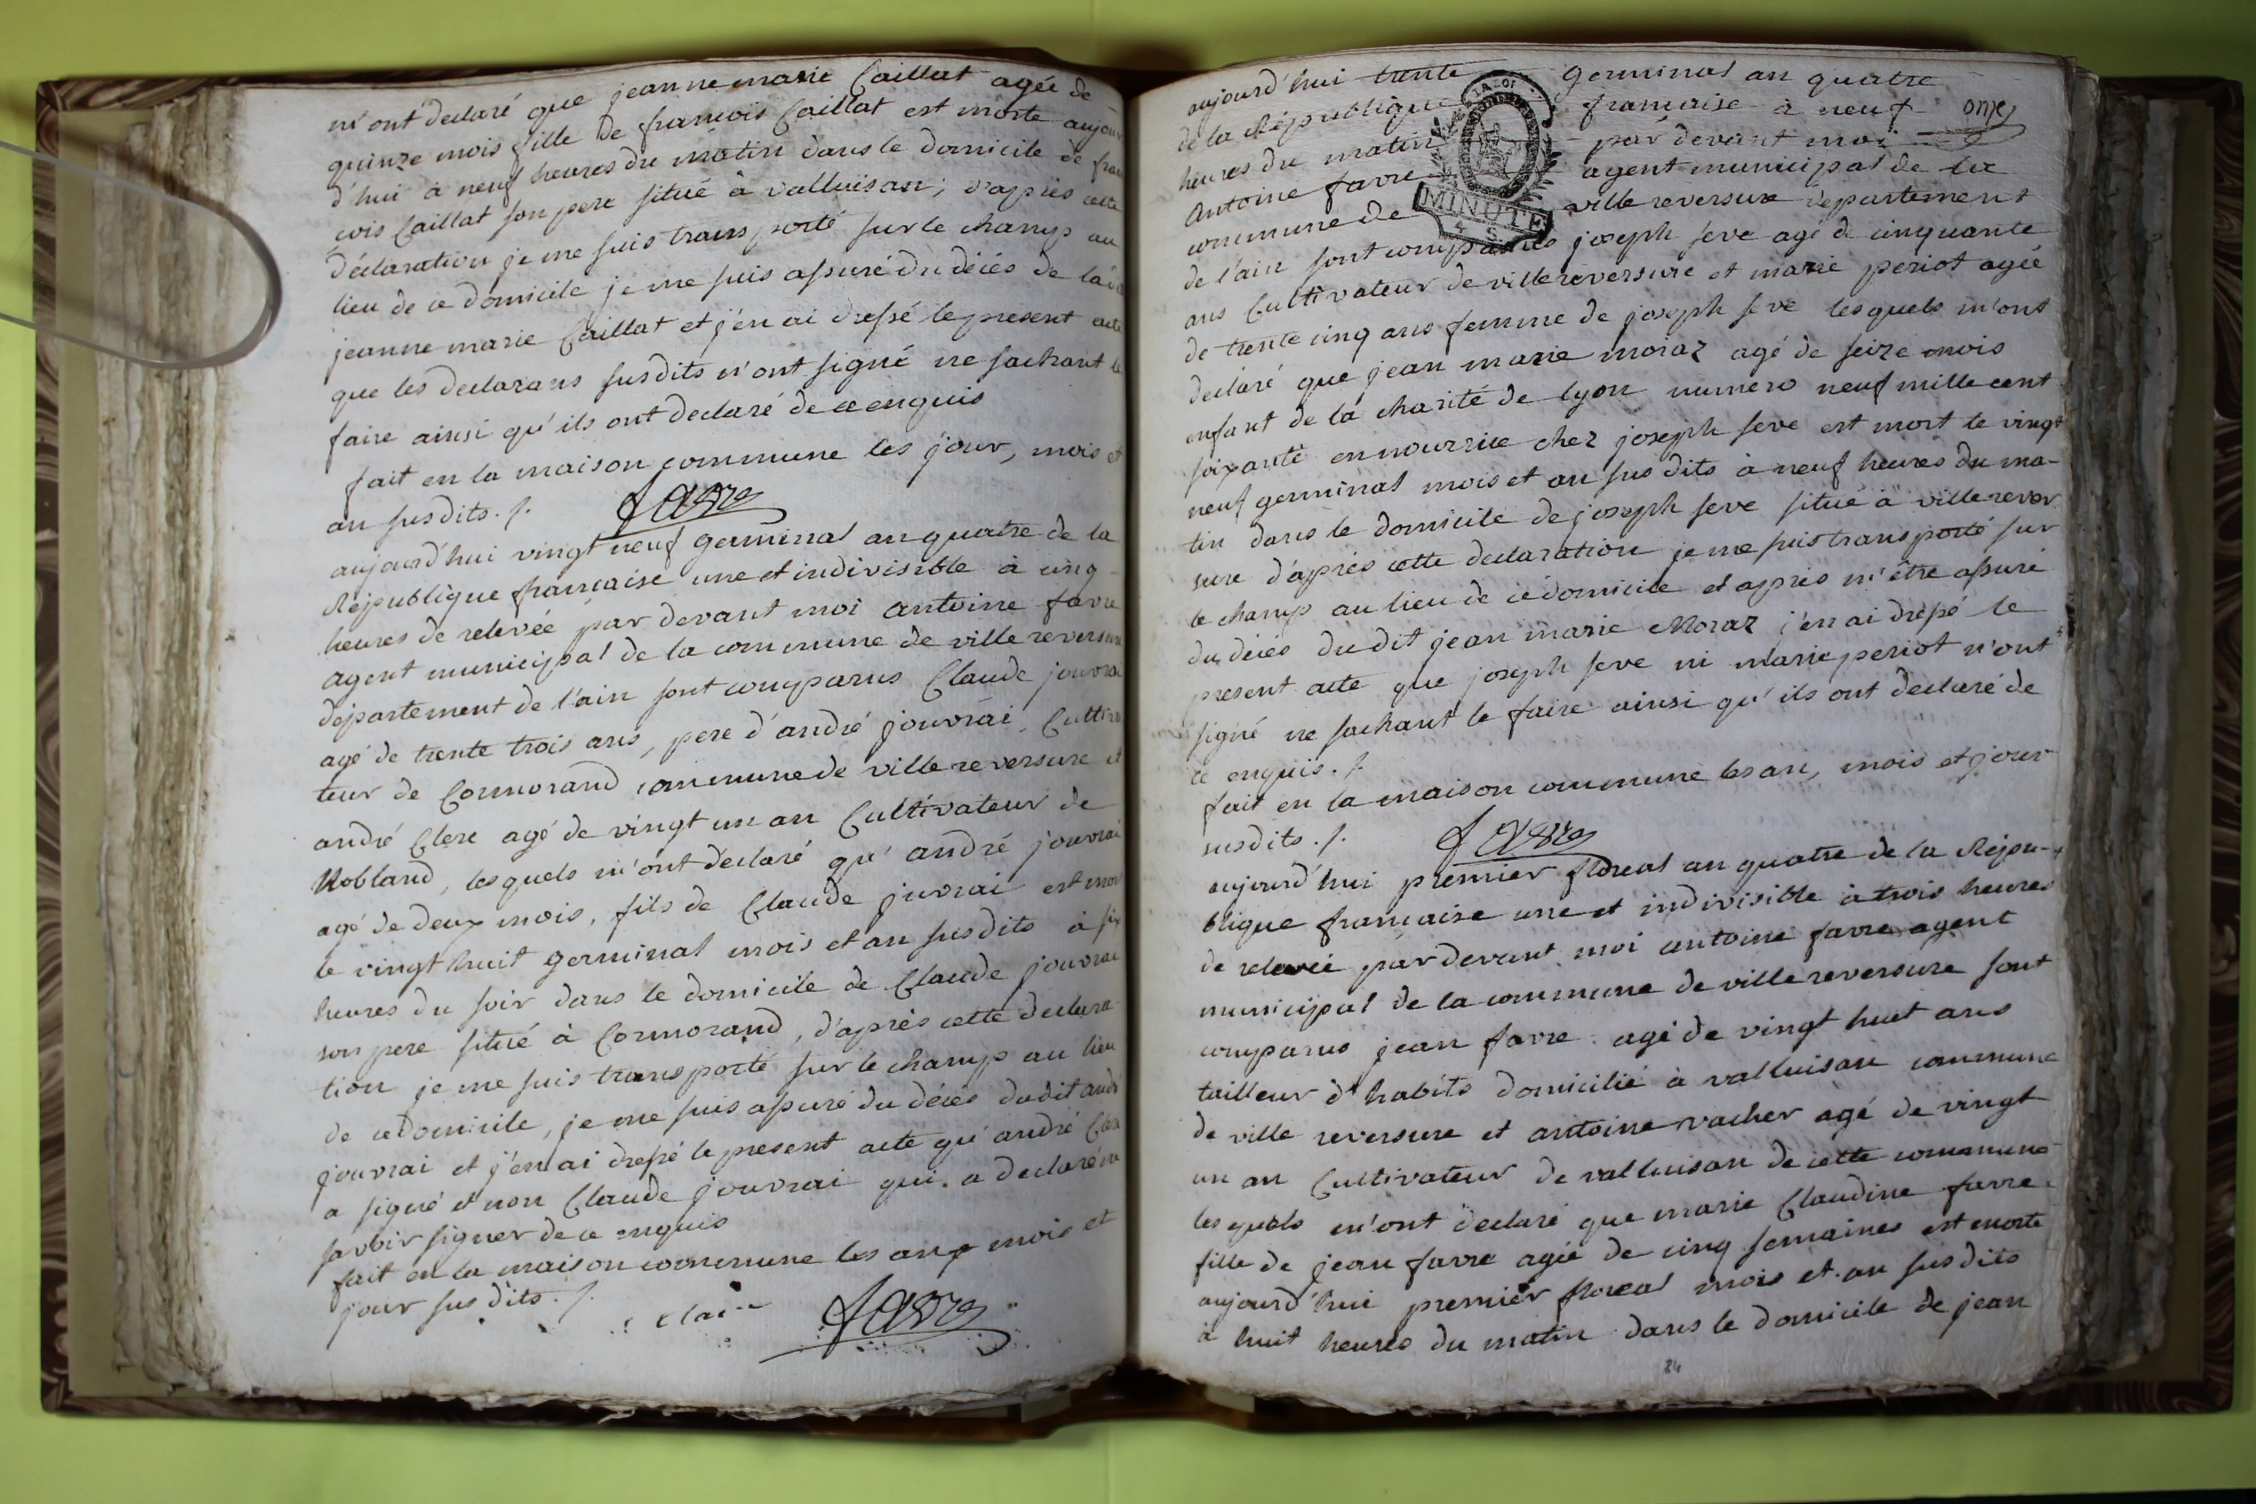 m'ont declaré que jeanne marie Caillat agée de
quinze mois fille de francois Caillat est morte aujour
d'hui à neuf heures du matin dans le domicile de fran
cois Caillat son pere situé à valluisan; d'après cette
déclaration je me suis transporté sur le champ au
lieu de ce domicile je me suis assuré du décés de ladite
jeanne marie Caillat et j'en ai dressé le present acte
que les declarans susdits n'ont signé ne sachant le
faire ainsi qu'ils ont declaré de ce enquis
fait en la maison commune les jour, mois et
an susdits ./. favre
aujourd'hui vingt neuf germinal an quatre de la
République francaise une et indivisible à cinq
heures de relevée par devant moi antoine favre
agent municipal de la commune de ville reversure
département de l'ain sont comparus Claude jouvrai
agé de trente trois ans, pere d'andré jouvrai, Cultiva
teur de Cormorand commune de ville reversure et
andré Clerc agé de vingt un an Cultivateur de
Nobland, lesquels m'ont declaré qu'andré jouvrai
agé de deux mois, fils de Claude juvrai est mort
le vingt huit germinal mois et an susdits à six
heures du soir dans le domicile de Claude jouvrai
son pere situé à Cormorand, d'après cette declara
tion je me suis transporté sur le champ au lieu
de ce domicile, je me suis assuré du décés dudit andré
jouvrai et j'en ai dressé le present acte qu'andré Clerc
a signé et non Claude jouvrai qui a declaré ne
savoir signer de ce enquis
fait en la maison commune les an mois et
jour susdits ./.
favre
aujourd'hui trente germinal an quatre
de la République francaise à neuf
heures du matin par devant moi
Antoine favre agent municipal de la
commune de ville reversure département
LA LOI
MINUTE
4 S
de l'ain sont comparus joseph seve agé de cinquante
ans Cultivateur de ville reversure et marie periot agée
de trente cinq ans femme de joseph seve lesquels m'ont
declaré que jean marie moraz agé de seize mois
enfant de la charité de lyon numero neuf mille cent
soixante en nourrice chez joseph seve est mort le vingt
neuf germinal mois et an susdits à neuf heures du ma-
tin dans le domicile de joseph seve situé à ville rever
sure d'après cette declaration je me suis transporté sur
le champ au lieu de ce domicile et après m'être assuré
du décés dudit jean marie Moraz j'en ai dressé le
present acte que joseph seve ni marie periot n'ont
signé ne sachant le faire ainsi qu'ils ont declaré de
ce enquis ./.
fait en la maison commune les an, mois et jour
susdits ./. favre
aujourd'hui premier floreal an quatre de la Répu-
blique francaise une et indivisible à trois heures
de relevée par devant moi antoine favre agent
municipal de la commune de ville reversure sont
comparus jean favre agé de vingt huit ans
tailleur d'habits domicilié à valluisan commune
de ville reversure et antoine vacher agé de vingt
un an Cultivateur de valluisan de cette commune
lesquels m'ont declaré que marie Claudine favre
fille de jean favre agée de cinq semaines est morte
aujourd'hui premier floreal mois et an susdits
à huit heures du matin dans le domicile de jean
84